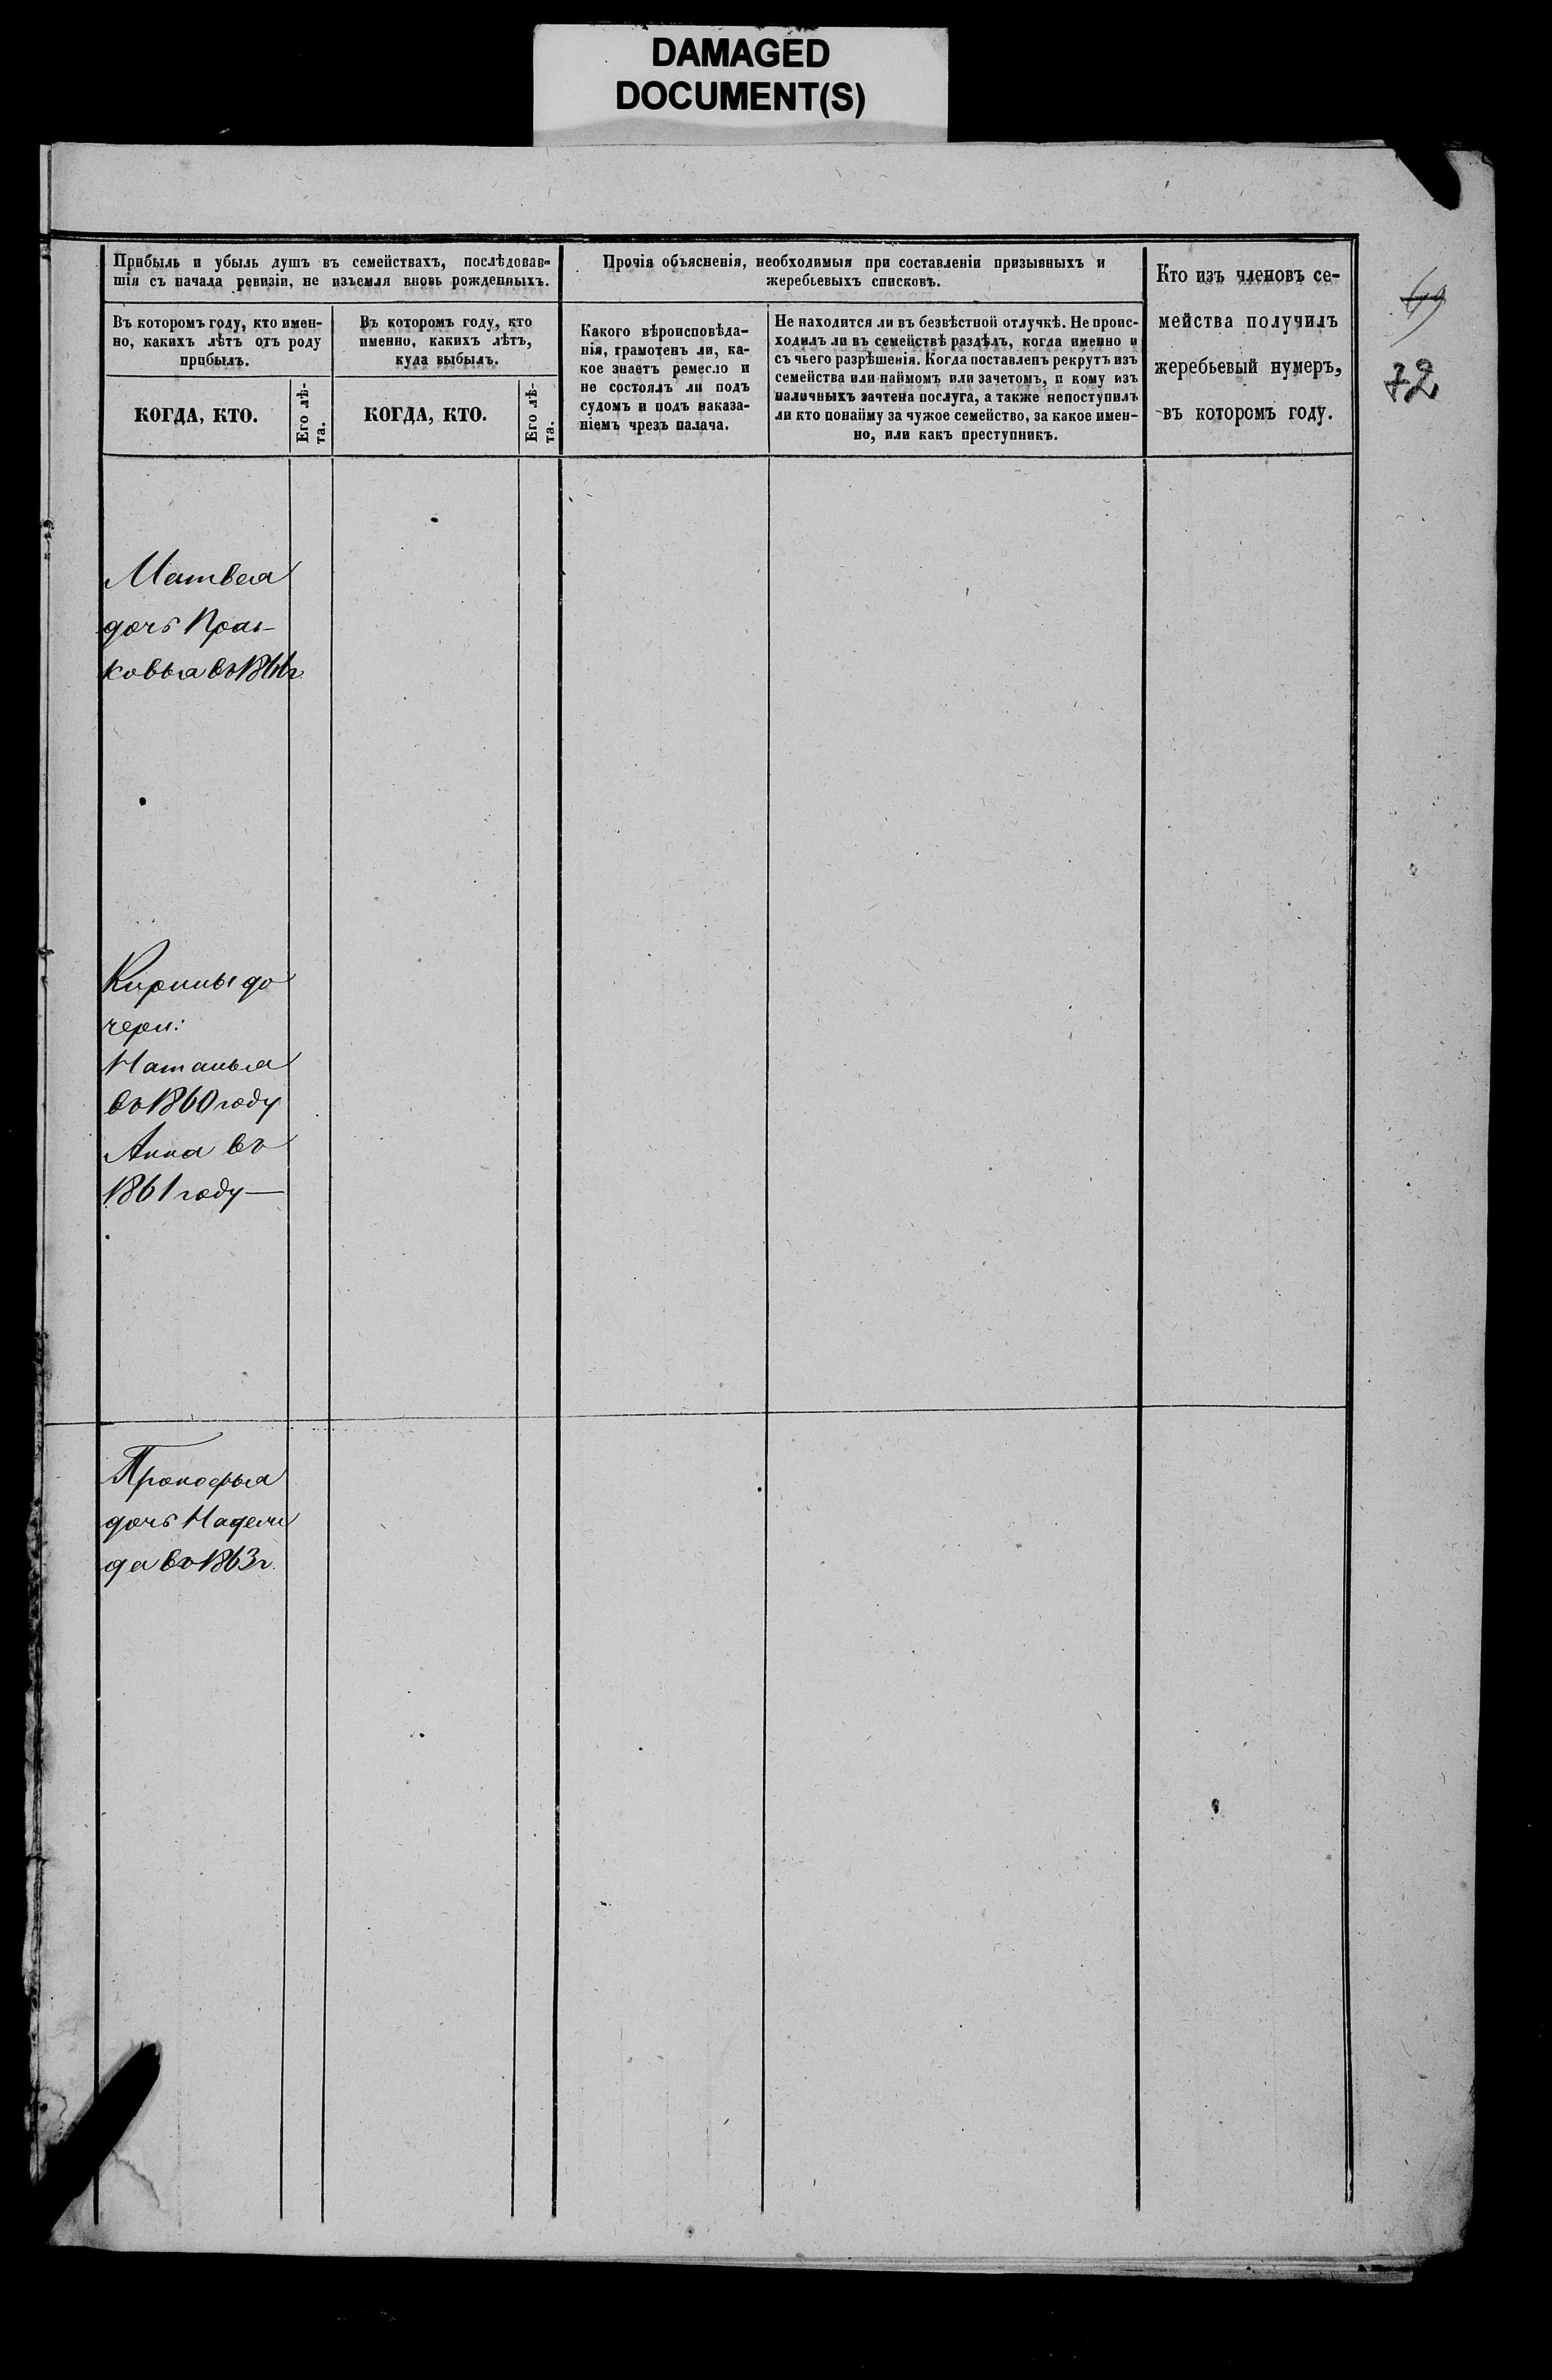 DAMAGED
DOCUMENT(S)
Прибыль и убыль душъ въ семействахъ, послѣдовав-
шія съ начала ревизіи, не изъемля вновь рожденныхъ.
Прочія объясненія, необходимыя при составленіи призывныхъ и
жеребьевыхъ списковъ.
Кто изъ членовъ се-
мейства получилъ
жеребьевый нумеръ,
въ которомъ году.
69
72
Въ которомъ году, кто имен-
но, какихъ лѣтъ отъ роду
прибылъ.
Въ которомъ году, кто
именно, какихъ лѣтъ,
куда выбылъ.
Какого вѣроисповѣда-
нія, грамотенъ ли, ка-
кое знаетъ ремесло и
не состоялъ ли подъ
судомъ и подъ наказа-
ніемъ чрезъ палача.
Не находится ли въ безвѣстной отлучкѣ. Не проис-
ходилъ ли въ семействѣ раздѣлъ, когда именно и
съ чьего разрѣшенія. Когда поставленъ рекрутъ изъ
семейства или наймомъ или зачетомъ, и кому изъ
наличныхъ зачтена послуга, а также непоступилъ
ли кто понайму за чужое семейство, за какое имен-
но, или какъ преступникъ.
КОГДА, КТО.
Его лѣ-
та.
КОГДА, КТО.
Его лѣ-
та.
Матвея
дочь Прас-
ковья въ 1866 г
Кирилы до
чери:
Наталья
въ 1860 году
Анна въ
1861 году —
Прокофья
дочь Надеж
да въ 1863 г.